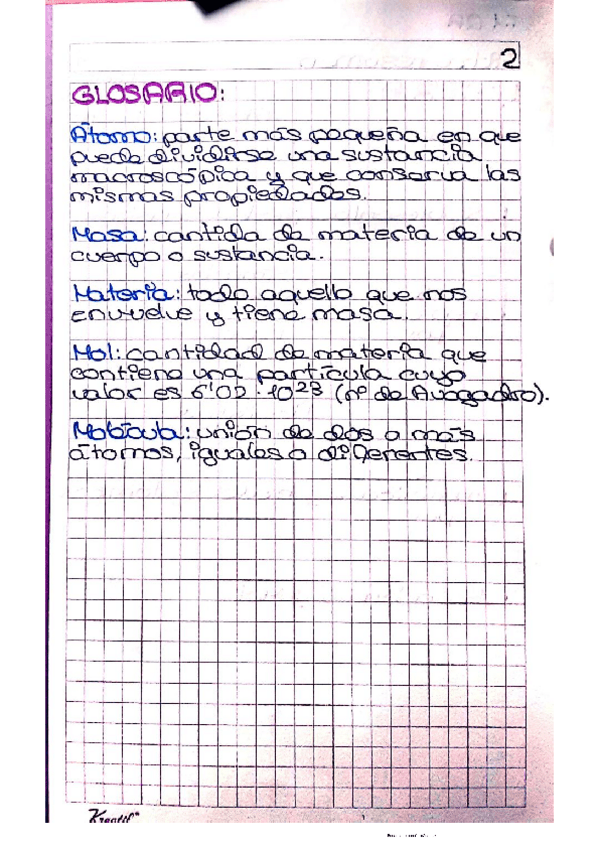 2
GLOSARIO:
Átomo: parte más pequeña en que
puede dividirse una sustancia
macroscópica y que conserva las
mismas propiedades.
Masa: cantida de materia de un
cuerpo o sustancia.
Materia: todo aquello que nos
envuelve y tiene masa.
Mol: cantidad de materia que
contiene una partícula cuyo
valor es 6'02·10²³ (nº de Avogadro).
Molécula: unión de dos o más
átomos, iguales o diferentes.